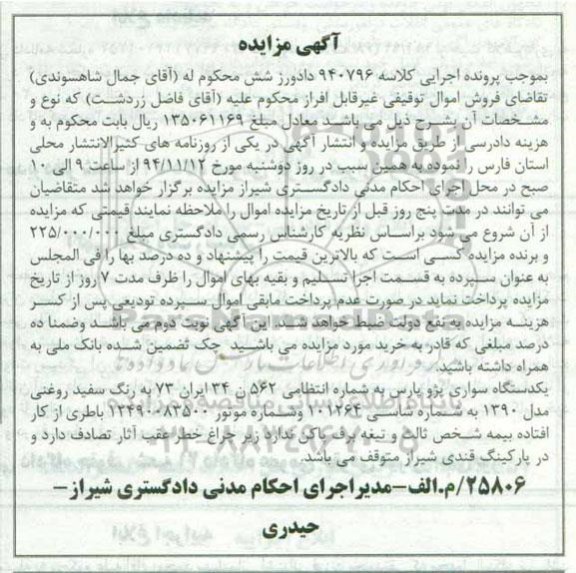 آگهی مزایده
بموجب پرونده اجرایی کلاسه ۹۴۰۷۹۶ دادورز شش محکوم له (آقای جمال شاهسوندی)
تقاضای فروش اموال توقیفی غیرقابل افراز محکوم علیه (آقای فاضل زردشت) که نوع و
مشخصات آن بشرح ذیل می باشد معادل مبلغ ۱۳۵۰۶۱۱۶۹ ریال بابت محکوم به و
هزینه دادرسی از طریق مزایده و انتشار آگهی در یکی از روزنامه های کثیرالانتشار محلی
استان فارس را نموده به همین سبب در روز دوشنبه مورخ ۹۴/۱۱/۱۲ از ساعت ۹ الی ۱۰
صبح در محل اجرای احکام مدنی دادگستری شیراز مزایده برگزار خواهد شد متقاضیان
می توانند در مدت پنج روز قبل از تاریخ مزایده اموال را ملاحظه نمایند قیمتی که مزایده
از آن شروع می شود براساس نظریه کارشناس رسمی دادگستری مبلغ ۲۲۵/۰۰۰/۰۰۰
و برنده مزایده کسی است که بالاترین قیمت را پیشنهاد و ده درصد بها را فی المجلس
به عنوان سپرده به قسمت اجرا تسلیم و بقیه بهای اموال را ظرف مدت ۷ روز از تاریخ
مزایده پرداخت نماید در صورت عدم پرداخت مابقی اموال سپرده تودیعی پس از کسر
هزینه مزایده به نفع دولت ضبط خواهد شد این آگهی نوبت دوم می باشد وضمنا ده
درصد مبلغی که قادر به خرید مورد مزایده می باشید چک تضمین شده بانک ملی به
همراه داشته باشید.
یکدستگاه سواری پژو پارس به شماره انتظامی ۵۶۲ ن ۳۴ ایران ۷۳ به رنگ سفید روغنی
مدل ۱۳۹۰ به شماره شاسی ۱۰۱۲۶۴ وشماره موتور ۱۲۴۹۰۰۸۳۵۰۰ باطری از کار
افتاده بیمه شخص ثالث و تیغه برف پاکن ندارد زیر چراغ خطر عقب آثار تصادف دارد و
در پارکینگ قندی شیراز متوقف می باشد.
۲۵۸۰۶/م.الف-مدیراجرای احکام مدنی دادگستری شیراز-
حیدری